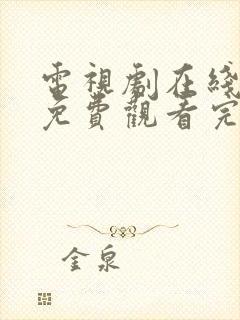 電視劇在綫
免費觀看完
金泉